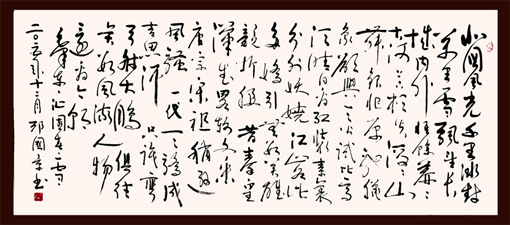 北国风光千里冰封
万里雪飘望长
城内外惟余莽莽
大河上下顿失滔滔山
舞银蛇原驰蜡
象欲与天公试比高
须晴日看红装素裹
分外妖娆江山如此
多娇引无数英雄
竞折腰昔秦皇
汉武略输文采
唐宗宋祖稍逊
风骚一代天骄成
吉思汗只识弯
弓射大雕俱往
矣数风流人物
还看今朝
毛泽东沁园春雪
十二月 国章书